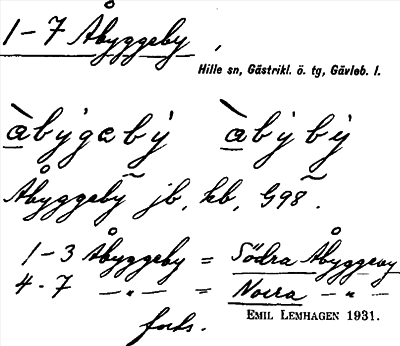 1-7 Åbyggeby,
Hille sn, Gästrikl. ö. tg, Gävleb. l.
àbýgebẏ̀ àbẏbẏ̀
Åbyggeby jb, kb, G98.
1-3 Åbyggeby = Södra Åbyggeby
4-7 —"— = Norra —"—
forts.
EMIL LEMHAGEN 1931.